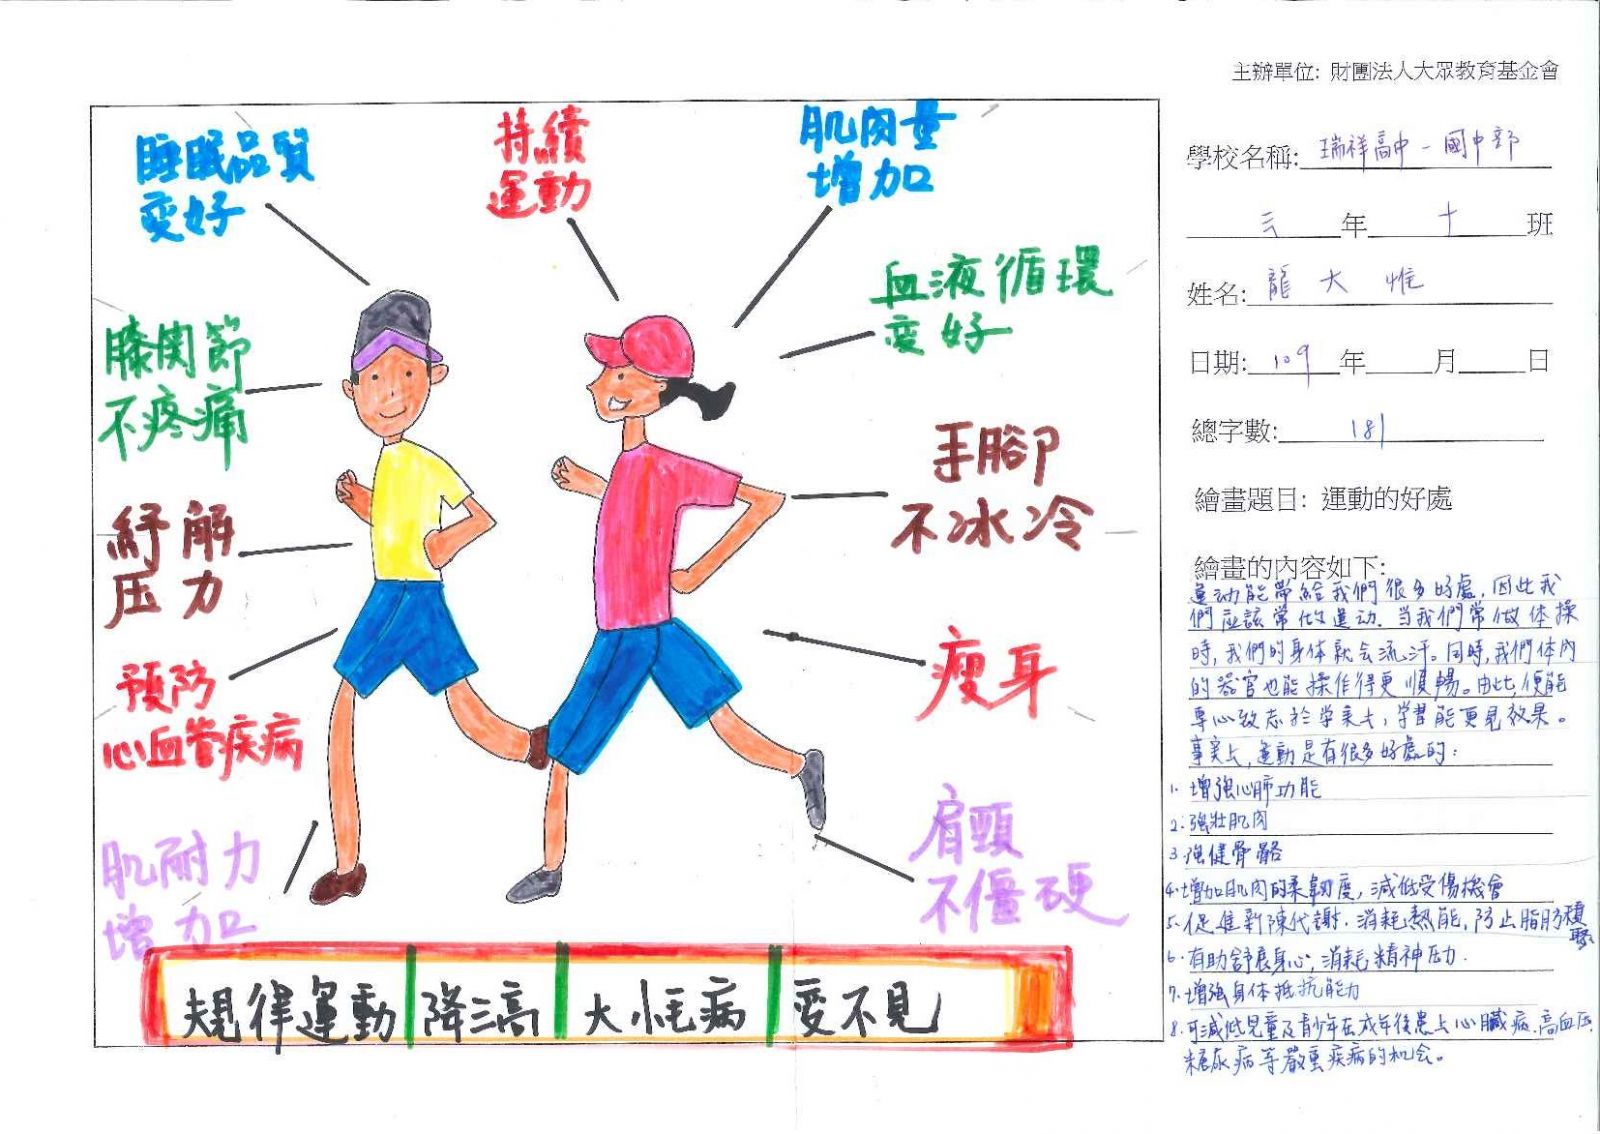 主辦單位: 財團法人大眾教育基金會
睡眠品質
變好
持續
運動
肌肉量
增加
血液循環
變好
膝関節
不疼痛
手腳
不冰冷
紓解
压力
預防
心血管疾病
瘦身
肌耐力
增加
肩頸
不僵硬
規律運動 降三高 大小毛病 變不見
學校名稱: 瑞祥高中-國中部
三年十班
姓名: 龍大惟
日期: 109年 月 日
總字數: 181
繪畫題目: 運動的好處
繪畫的內容如下:
運动能帶給我們很多好處,因此我
們应該常做運动.当我們常做体操
時,我們的身体就会流汗。同時,我們体內
的器官也能操作得更順暢。由此,便能
專心致志於学業上,学習能更見效果。
事实上,運動是有很多好處的:
1. 增強心肺功能
2. 強壯肌肉
3. 強健骨骼
4. 增加肌肉的柔韌度,減低受傷機會
5. 促進新陳代謝.消耗熱能,防止脂肪積聚
6. 有助舒展身心,消耗精神压力.
7. 增強身体抵抗能力
8. 可減低兒童及青少年在成年後患上心臟病.高血压.
糖尿病等嚴重疾病的机会。